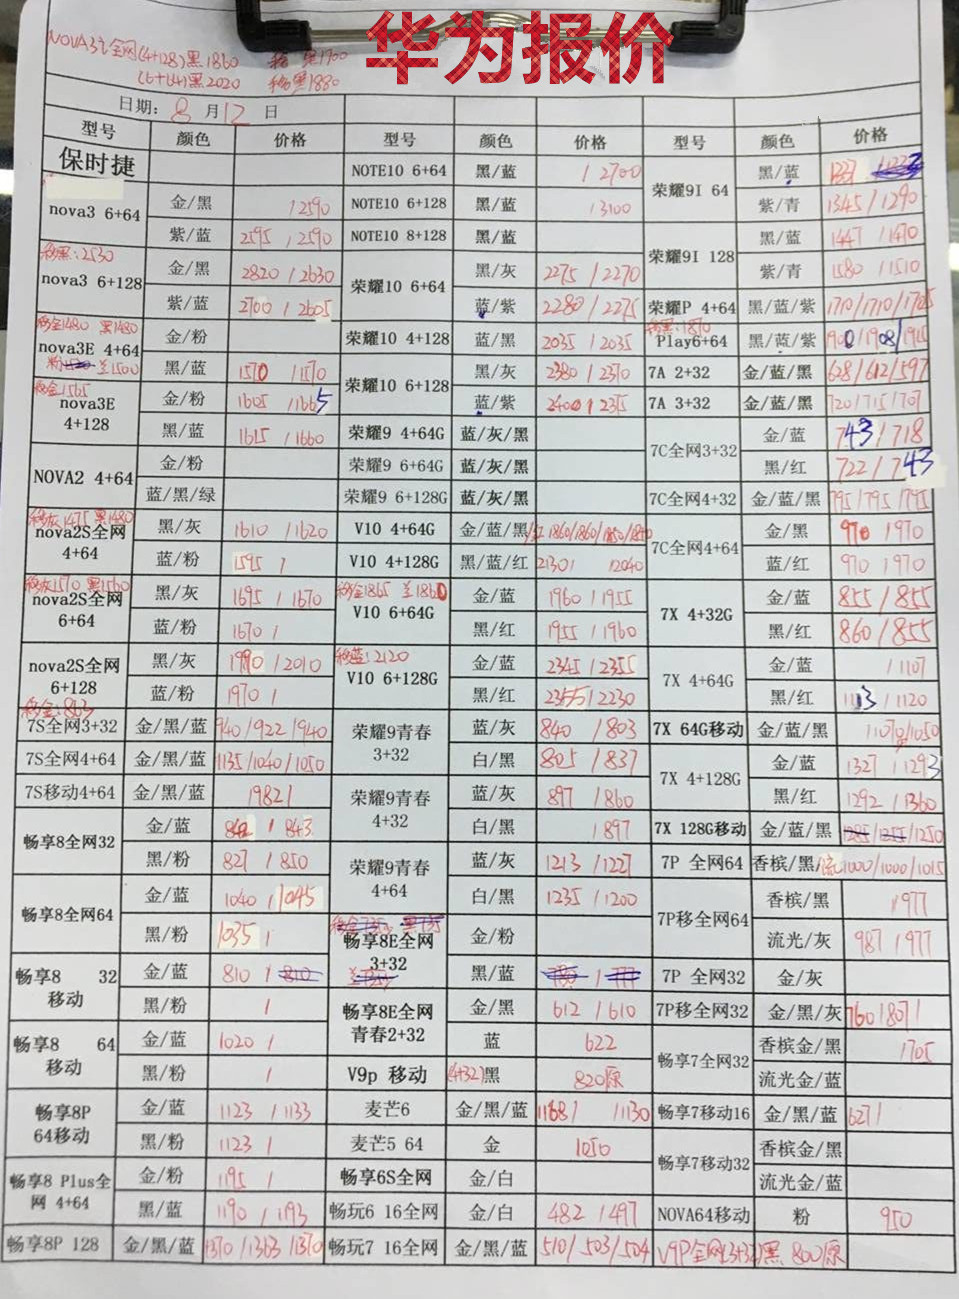 华为报价
NOVA3i全网(4+128)黑1860 移 黑1700
(6+64)黑2020 移 黑1880
日期: 8 月 12 日
型号 颜色 价格 型号 颜色 价格 型号 颜色 价格
保时捷
NOTE10 6+64 黑/蓝 / 2700
NOTE10 6+128 黑/蓝 / 3100
NOTE10 8+128 黑/蓝
荣耀9I 64 黑/蓝
紫/青 1345/1290
荣耀9I 128 黑/蓝 1447 /1470
紫/青 1580 /1510
nova3 6+64 金/黑 /2590
紫/蓝 2595 /2590
移黑:2530
nova3 6+128 金/黑 2820 /2630
紫/蓝 2700 /2605
荣耀10 6+64 黑/灰 2275 /2270
蓝/紫 2280/2275
荣耀P 4+64 黑/蓝/紫 1710/1710/1705
移金1480 黑1480
nova3E 4+64 金/粉
兰1500 黑/蓝 1570 /1570
荣耀10 4+128 蓝/黑 2035 /2035
移黑:1870
Play6+64 黑/蓝/紫
荣耀10 6+128 黑/灰 2380 /2370
蓝/紫 2400 /2375
7A 2+32 金/蓝/黑 628/612/597
7A 3+32 金/蓝/黑 720/715/707
移金1565
nova3E 4+128 金/粉 1605 /1665
黑/蓝 1615 /1660
荣耀9 4+64G 蓝/灰/黑
荣耀9 6+64G 蓝/灰/黑
荣耀9 6+128G 蓝/灰/黑
7C全网3+32 金/蓝 743/718
黑/红 722/743
7C全网4+32 金/蓝/黑 795/795/795
NOVA2 4+64 金/粉
蓝/黑/绿
移灰1475 黑1480
nova2S全网 4+64 黑/灰 1610 /1620
蓝/粉 1595 /
V10 4+64G 金/蓝/黑/红 1860/1860/1850/1850
V10 4+128G 黑/蓝/红 2130/ 2040
7C全网4+64 金/黑 970 /970
蓝/红 970 /970
移灰1570 黑1560
nova2S全网 6+64 黑/灰 1695 /1670
蓝/粉 1670 /
移金1865 兰1860
V10 6+64G 金/蓝 1960 /1955
黑/红 1955 /1960
7X 4+32G 金/蓝 855/855
黑/红 860/855
nova2S全网 6+128 黑/灰 1990 /2010
蓝/粉 1970 /
移蓝:2120
V10 6+128G 金/蓝 2345 /2355
黑/红 2355/2230
7X 4+64G 金/蓝 /1107
黑/红 1113 /1120
移金:863
7S全网3+32 金/黑/蓝 940/922/940
7S全网4+64 金/黑/蓝 1135/1040/1050
7S移动4+64 金/黑/蓝 /982/
荣耀9青春 3+32 蓝/灰 840 /803
白/黑 805 /837
荣耀9青春 4+32 蓝/灰 897 /860
白/黑 /897
荣耀9青春 4+64 蓝/灰 1213 /1227
白/黑 1235 /1200
7X 64G移动 金/蓝/黑 1070/1050
7X 4+128G 金/蓝 1327 /1293
黑/红 1292 /1360
7X 128G移动 金/蓝/黑 1285/1255/1250
7P 全网64 香槟/黑/流 1000/1000/1015
畅享8全网32 金/蓝 842 / 843
黑/粉 827 / 850
畅享8全网64 金/蓝 1040 /1045
黑/粉 1035 /
7P移全网64 香槟/黑 /977
流光/灰 987 /977
移金735 黑735
畅享8E全网 3+32 金/粉
黑/蓝
畅享8 32 移动 金/蓝 810 / 810
黑/粉 /
7P 全网32 金/灰
7P移全网32 金/黑/灰 760/807/
畅享8E全网 青春2+32 金/黑 612 /610
蓝 622
畅享8 64 移动 金/蓝 1020 /
黑/粉 /
V9p 移动 (4+32)黑 820原
畅享7全网32 香槟金/黑 /705
流光金/蓝
畅享8P 64移动 金/蓝 1123 /1133
黑/粉 1123 /
麦芒6 金/黑/蓝 1168/ /1130
麦芒5 64 金 1050
畅享7移动16 金/黑/蓝 627/
畅享7移动32 香槟金/黑
流光金/蓝
畅享8 Plus全网 4+64 金/粉 1195 /
黑/蓝 1190 /1193
畅享6S全网 金/白
畅玩6 16全网 金/白 482 /497
NOVA64移动 粉 950
畅享8P 128 金/黑/蓝 1370/1363/1370
畅玩7 16全网 金/黑/蓝 510/503/504
V9P全网(3+32)黑 800原